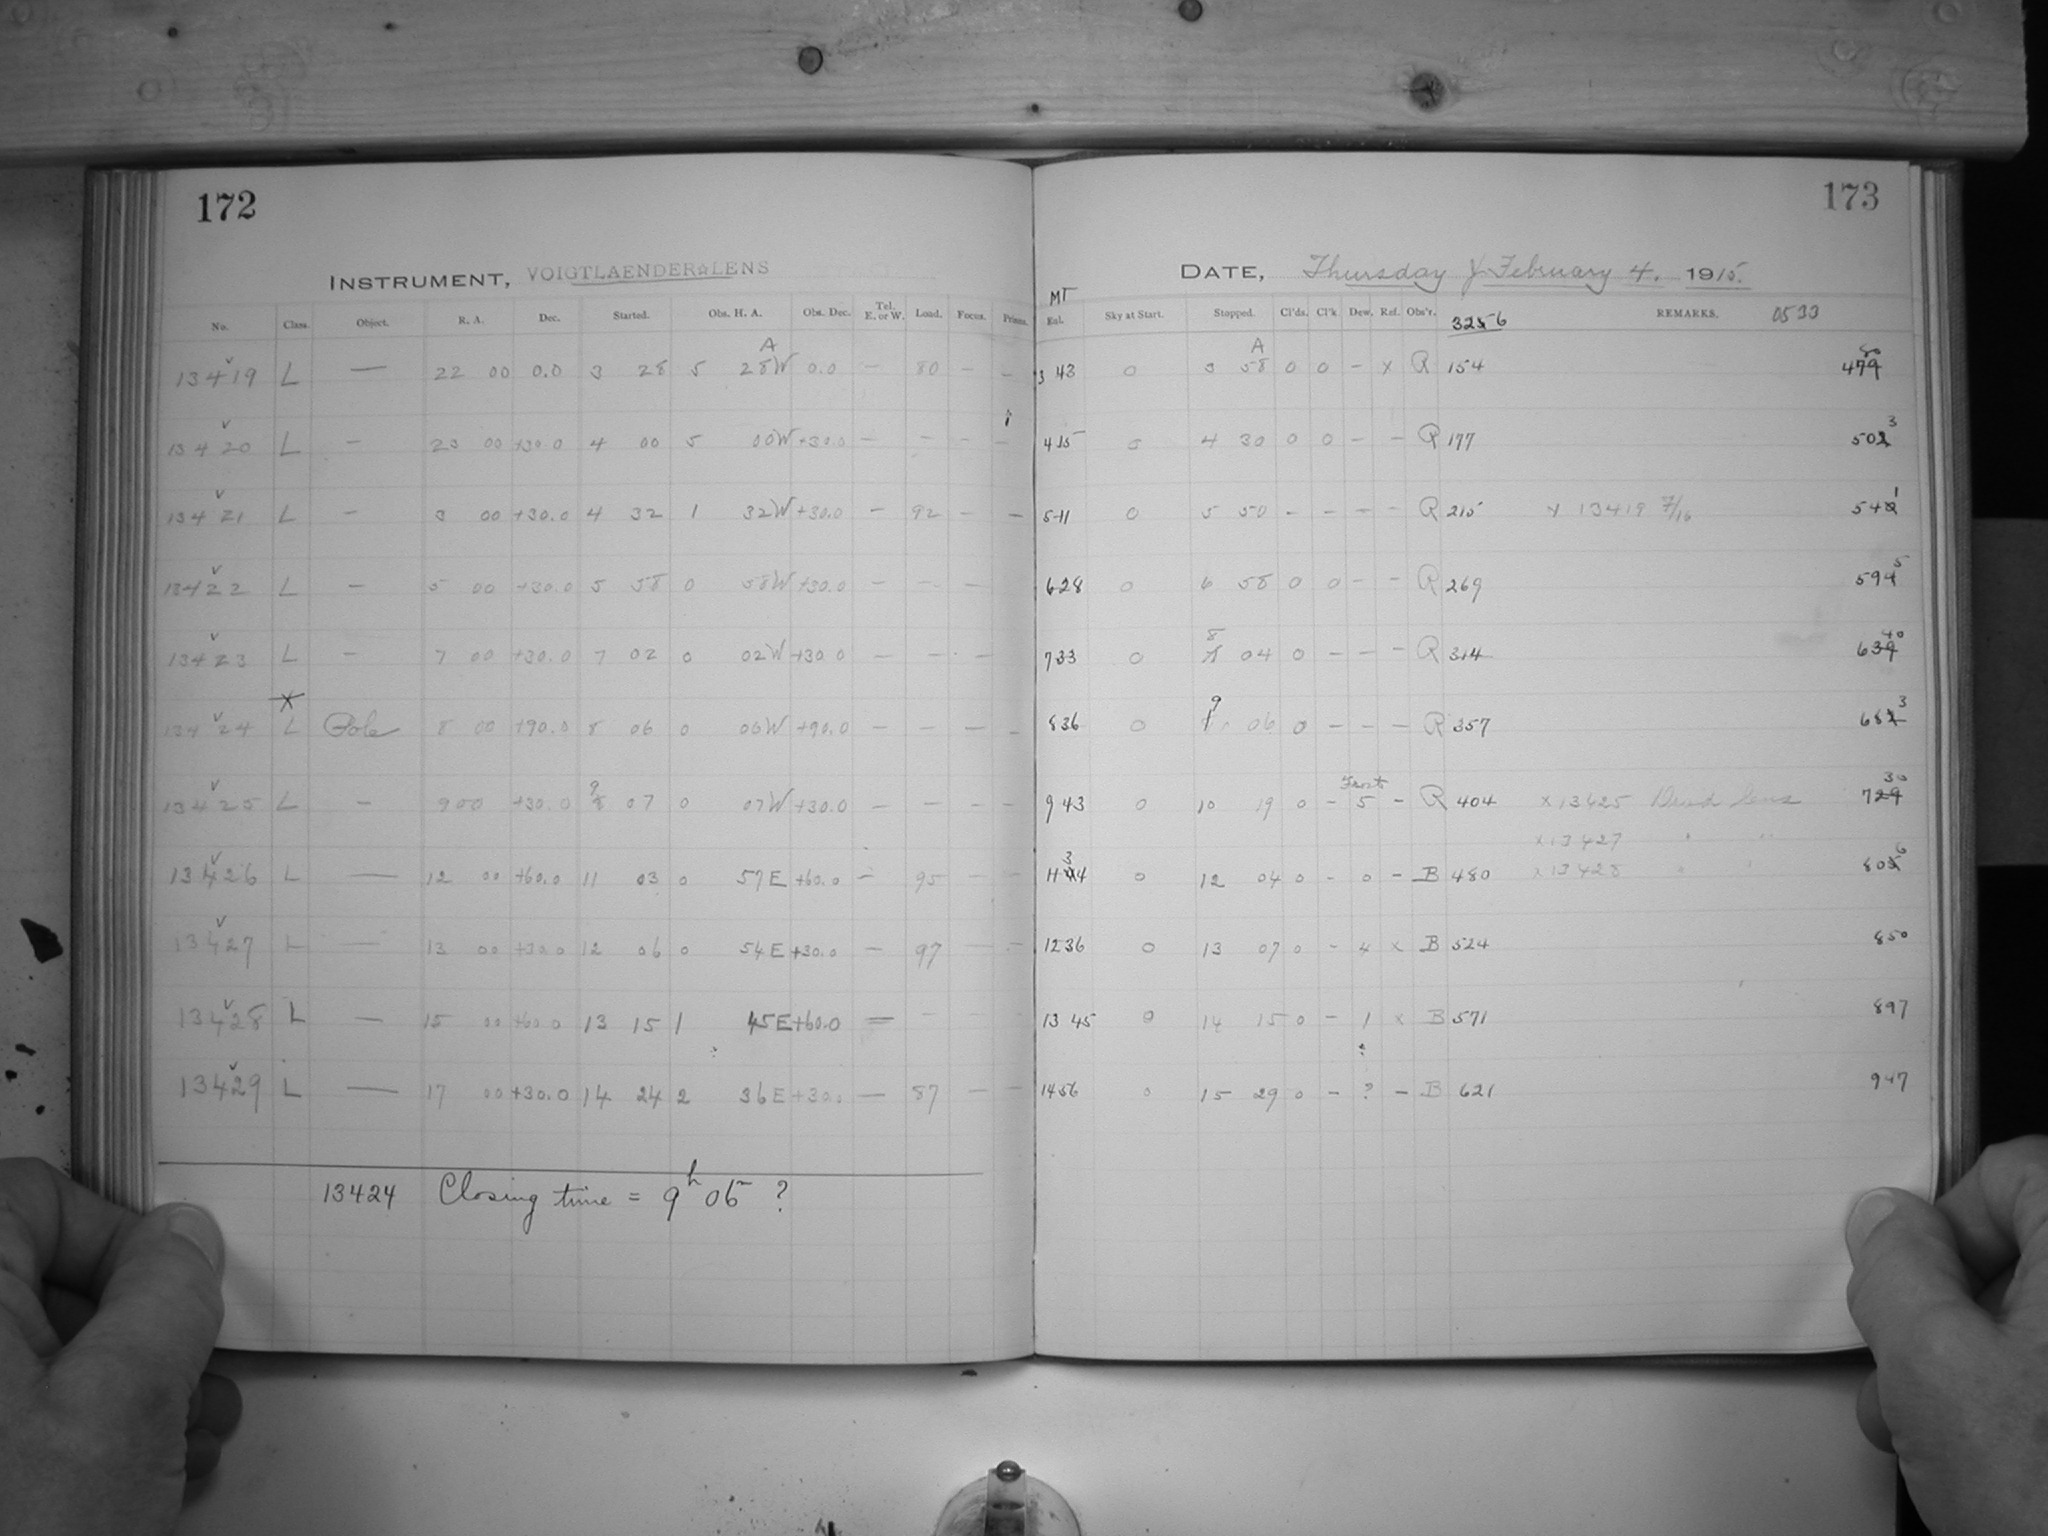 172
INSTRUMENT, VOIGTLAENDER LENS
No. Class. Object. R. A. Dec. Started. Obs. H. A. Obs. Dec. Tel. E. or W. Load. Focus. Prisms.
13419 L — 22 00 0.0 3 28 5 28W 0.0 — 80 — —
13420 L — 23 00 +30.0 4 00 5 00W +30.0 — — — —
13421 L — 3 00 +30.0 4 32 1 32W +30.0 — 92 — —
13422 L — 5 00 +30.0 5 58 0 58W +30.0 — — —
13423 L — 7 00 +30.0 7 02 0 02W +30.0 — — — —
13424 L Pole 8 00 +90.0 8 06 0 06W +90.0 — — — —
13425 L — 9 00 +30.0 9 07 0 07W +30.0 — — — —
13426 L — 12 00 +60.0 11 03 0 57E +60.0 — 95 — —
13427 L — 13 00 +30.0 12 06 0 54E +30.0 — 97 — —
13428 L — 15 00 +60.0 13 15 1 45E +60.0 — — — —
13429 L — 17 00 +30.0 14 24 2 36E +30.0 — 87 — —
13424 Closing time = 9h 06m ?
173
DATE, Thursday February 4. 1915.
MT
Enl. Sky at Start. Stopped. Cl'ds. Cl'k. Dew. Ref. Obs'r. 3256 REMARKS. 0533
3 43 0 3 58 0 0 - x R 154 479 80
4 15 0 4 30 0 0 - - R 177 502 3
5 11 0 5 50 - - - - R 215 x 13419 7/16 542 1
6 28 0 6 58 0 0 - - R 269 594 5
7 33 0 8 04 0 - - - R 314 639 40
8 36 0 9 06 0 - - - R 357 682 3
9 43 0 10 19 0 - Frost 5 - R 404 x 13425 Dewed lens 729 30
x 13427 " "
11 34 0 12 04 0 - 0 - B 480 x 13428 " " 805 6
12 36 0 13 07 0 - 4 x B 524 850
13 45 0 14 15 0 - 1 x B 571 897
14 56 0 15 29 0 - ? - B 621 947